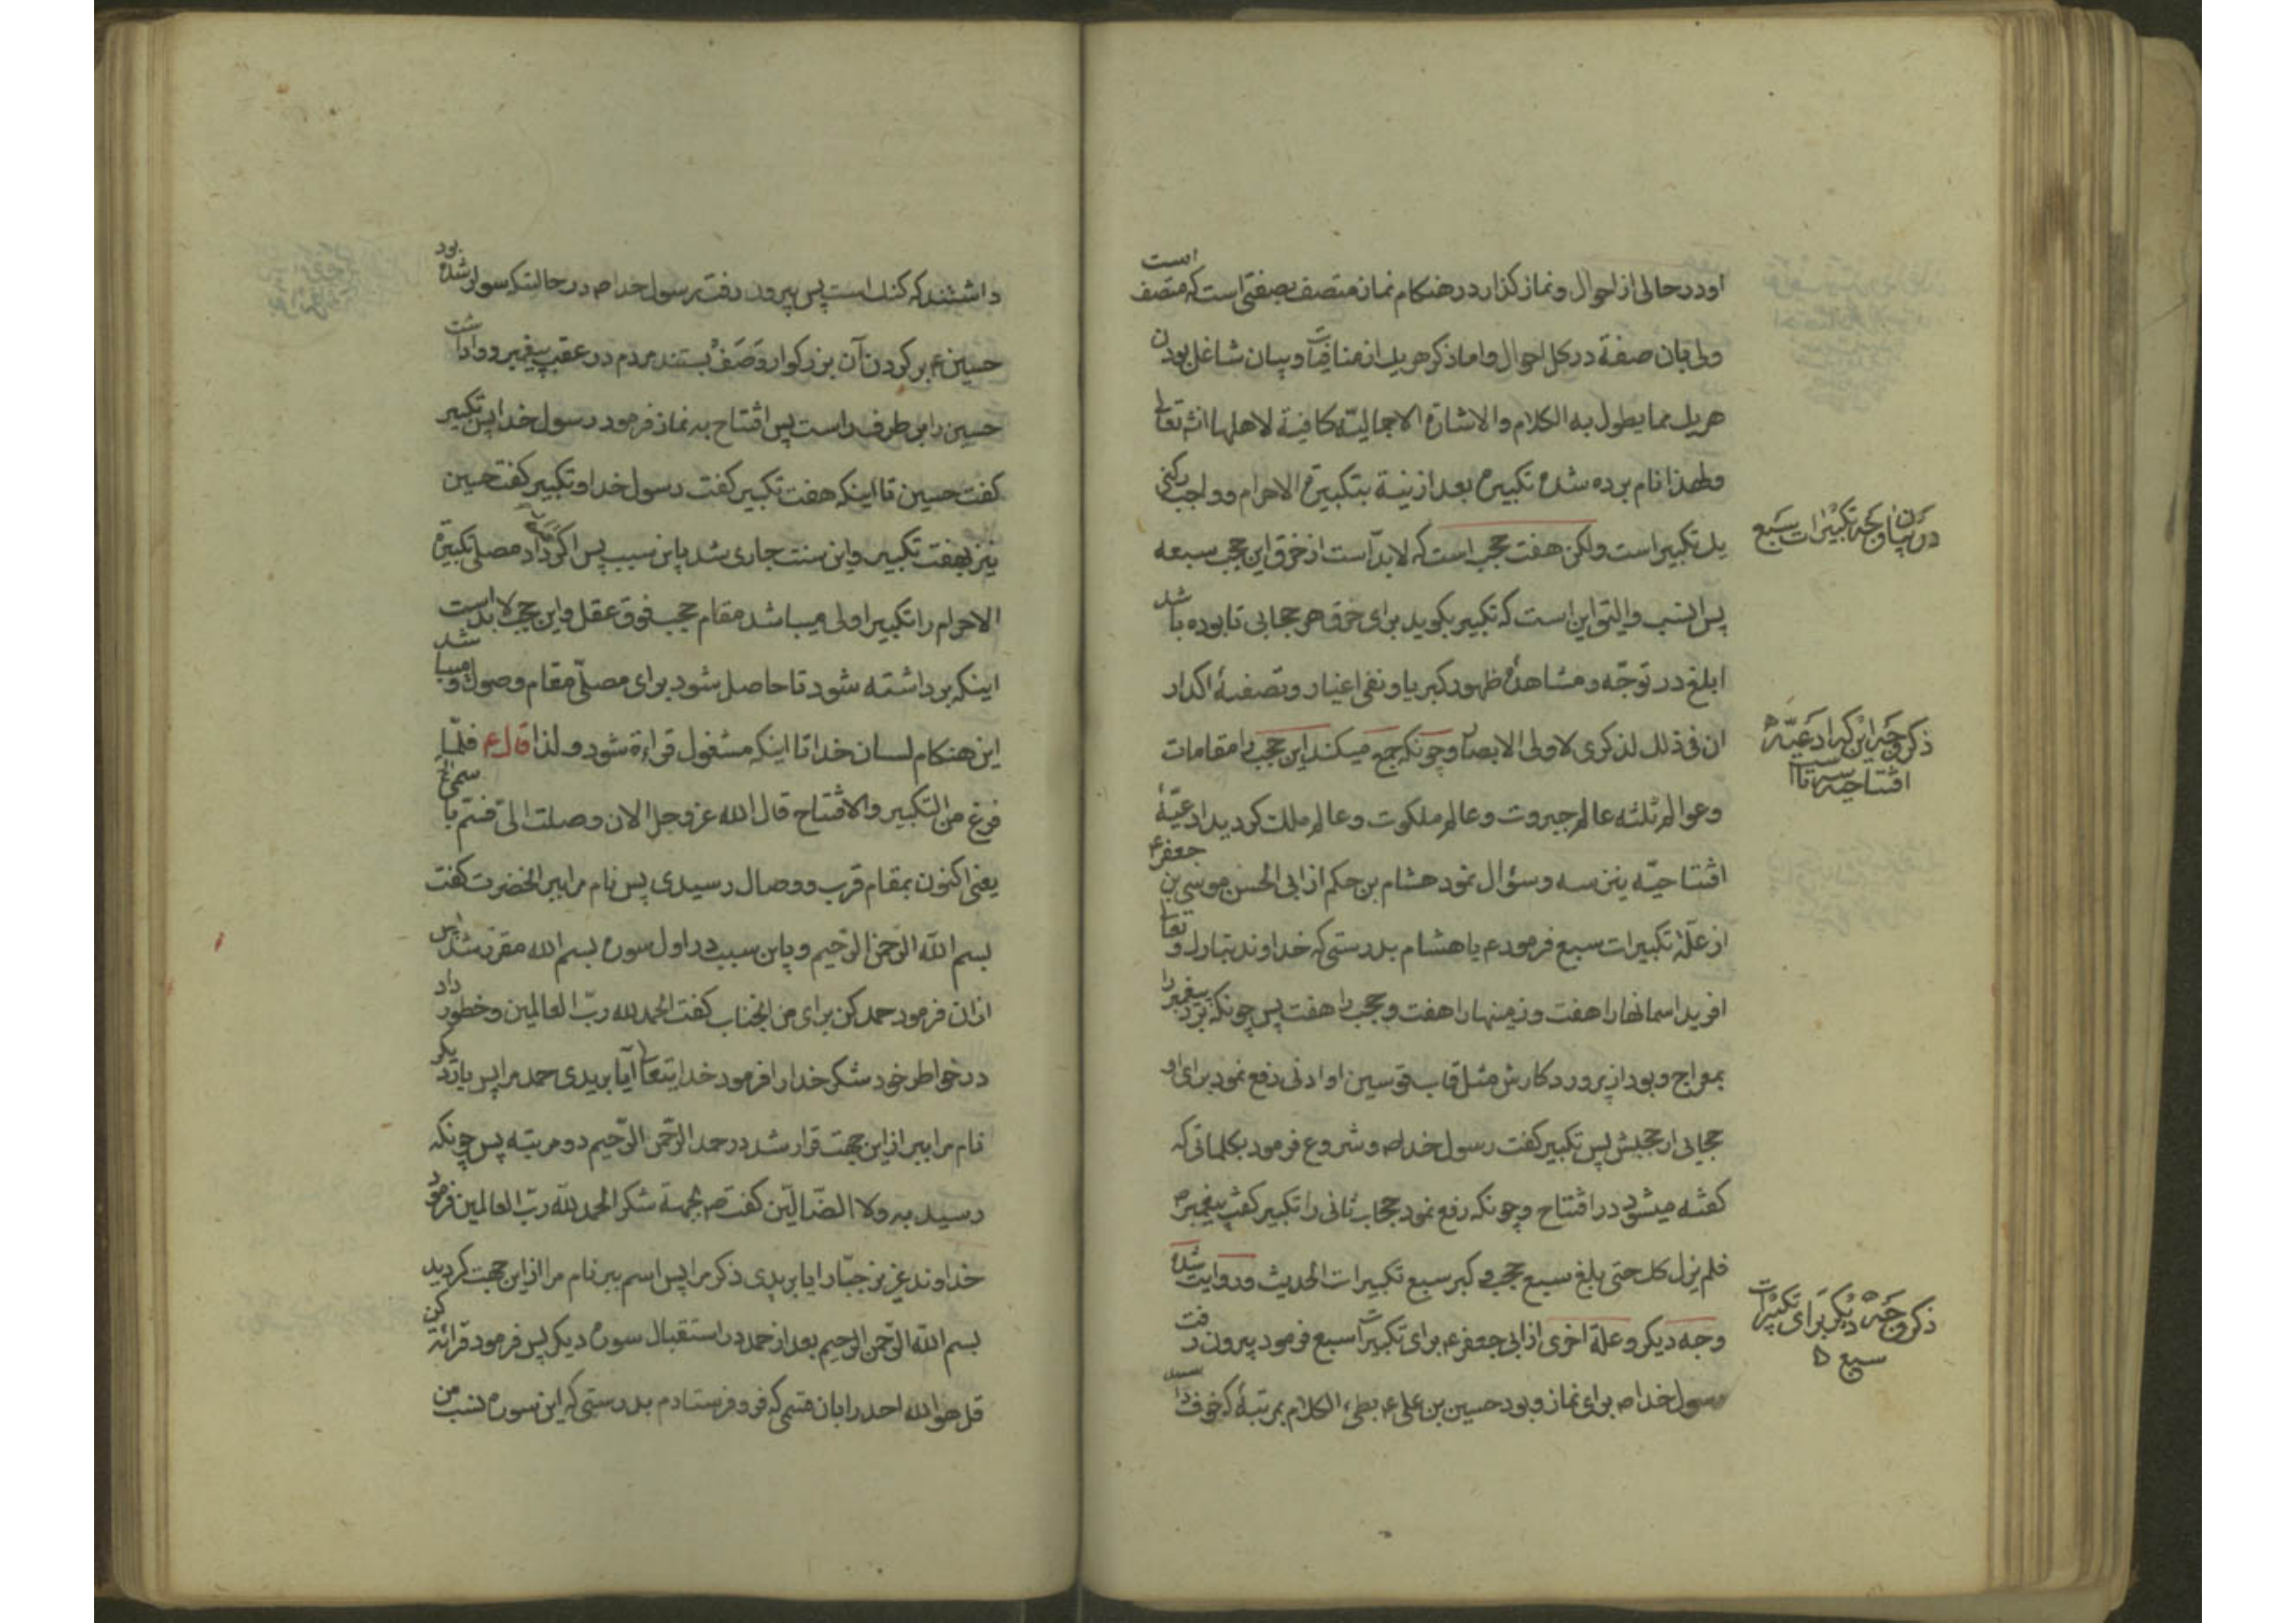 او در حالی از احوال و نماز کذار در هنکام نماز متصف بصفتی است که متصف است
ولی بان صفة در کل احوال و اما ذکر هریك از منافیات و بیان شاغل بودن
هریك مما یطول به الکلام و الاشارة الاجمالیّة کافیة لاهلها انشه تعالی
ولهذا نام برده شده تکبیره بعد از نیة بتکبیرة الاحرام و واجب رکنی
یك تکبیر است ولکن هفت حجب است که لابدّ است از خرق این حجب سبعه
در بیان وجه تکبیرات سبع
پس انسب و الیق این است که تکبیر بکوید برای خرق هر حجابی تا بوده باشد
ابلغ در توجّه و مشاهدهٔ ظهور کبریا و نفی اغیار و تصفیهٔ اکدار
ان فی ذلك لذکری لاولی الابصار و چونکه جمع میکند این حجب را مقامات
ذکر وجه این که ادعیّه
افتتاحیه سه تا است
و عوالم ثلثه عالم جبروت و عالم ملکوت و عالم ملك کردید ادعیّهٔ
افتتاحیّه نیز سه و سؤال نمود هشام بن حکم از ابی الحسن موسی بن جعفر ع
از علّهٔ تکبیرات سبع فرمود ع یا هشام بدرستی که خداوند تبارك و تعالی
افرید اسمانها را هفت و زمینها را هفت و حجب را هفت پس چونکه برد پیغمبر را
بمعراج و بود از پروردکارش مثل قاب قوسین او ادنی رفع نمود برای او
حجابی از حجبش پس تکبیر کفت رسول خدا ص و شروع فرمود بکلماتی که
کفته میشود در افتتاح و چونکه رفع نمود حجاب ثانی را تکبیر کفت پیغمبر ص
فلم یزل کل حتی بلغ سبع حجب و کبر سبع تکبیرات الحدیث و روایت شده
وجه دیکر و علّة اخری از ابی جعفر ع برای تکبیرات سبع فرمود بیرون رفت
ذکر وجه دیکر برای تکبیرات
سبع
رسول خدا ص برای نماز و بود حسین بن علی ع بطیء الکلام بمرتبهٔ که خوف
داشتند که کنك است پس بیرون رفت رسول خدا ص در حالتیکه سوار شده بود
حسین ع بر کردن آن بزرکوار و صَفْ بستند مردم در عقب پیغمبر و واداشت
حسین را بر طرف راست پس افتتاح به نماز فرمود رسول خدا پس تکبیر
کفت حسین تا اینکه هفت تکبیر کفت رسول خدا و تکبیر کفت حسین
نیز بهفت تکبیر و این سنت جاری شد باین سبب پس اکر داد مصلی تکبیرة
الاحرام را تکبیر اولی میباشد مقام حجب فوق عقل و این حجب لابد است
اینکه برداشته شود تا حاصل شود برای مصلّی مقام وصول و میباشد
این هنکام لسان خدا تا اینکه مشغول قراءة شود و لذا قال ع فلمّا
فرغ من التکبیر و الافتتاح قال الله عز و جل الان وصلت الی فسّم باسمی
یعنی اکنون بمقام قرب و وصال رسیدی پس نام مرا ببر انحضرت کفت
بسم الله الرّحمن الرّحیم و باین سبب در اول سوره بسم الله مقرّر شد پس
ازان فرمود حمد کن برای من انجناب کفت الحمد لله ربّ العالمین و خطور داد
در خواطر خود شکر خدا را فرمود خدایتعالی آیا بریدی حمد مرا پس باز دیکر
نام مرا ببر از این جهت قرار شد در حمد الرّحمن الرّحیم دو مرتبه پس چونکه
رسید به ولا الضّالّین کفت ص بجهة شکر الحمد لله ربّ العالمین فرمود
خداوند عزیز جبّار ایا بریدی ذکر مرا پس اسم ببر نام مرا از این جهت کردید
بسم الله الرّحمن الرحیم بعد از حمد در استقبال سوره دیکر پس فرمود قرائة کن
قل هو الله احد را بان قسمی که فرو فرستادم بدرستی که این سوره نسب من